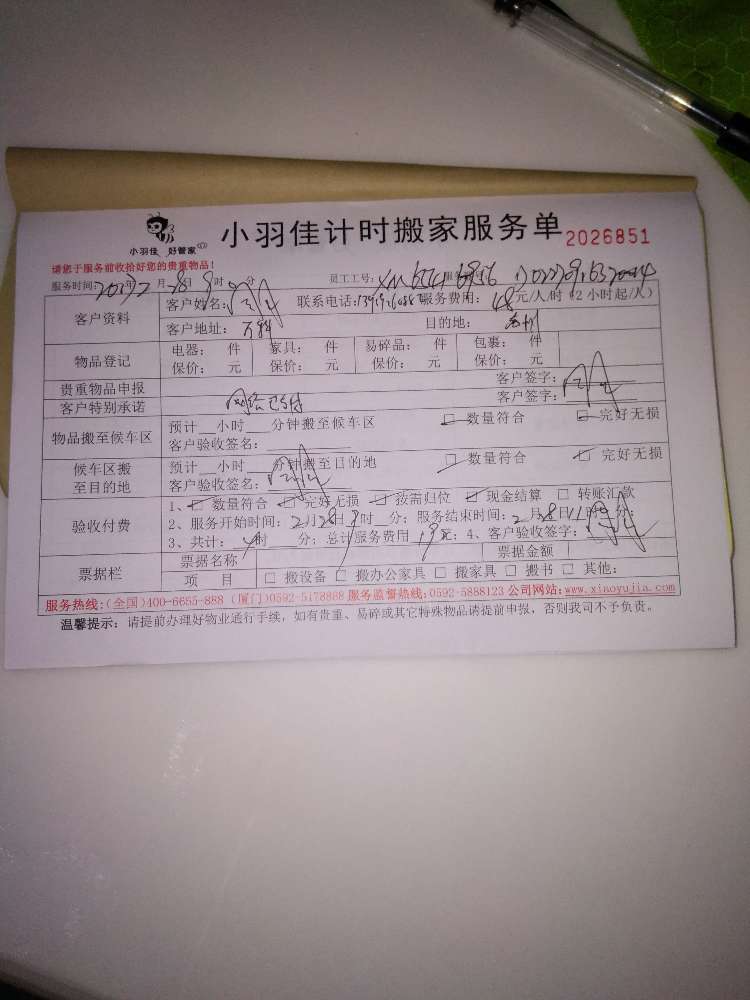 小羽佳 好管家
小羽佳计时搬家服务单
2026851
请您于服务前收拾好您的贵重物品！
服务时间： 2017年2月28日9时 分 员工工号：
客户资料 客户姓名： 联系电话： 服务费用：48元/人/时（2小时起/人）
客户地址： 目的地：
物品登记 电器： 件 家具： 件 易碎品： 件 包裹： 件
保价： 元 保价： 元 保价： 元 保价： 元
贵重物品申报 客户签字：
客户特别承诺 网络已付 客户签字：
物品搬至候车区 预计__小时___分钟搬至候车区 □ 数量符合 □ 完好无损
客户验收签名：
候车区搬至目的地 预计__小时___分钟搬至目的地 □ 数量符合 □ 完好无损
客户验收签名：
验收付费 1、□ 数量符合 □ 完好无损 □ 按需归位 □ 现金结算 □ 转账汇款
2、服务开始时间：2月28日9时__分；服务结束时间：2月28日11时 分；
3、共计： 时 分；总计服务费用 元；4、客户验收签字：
票据栏 票据名称 票据金额
项 目 □ 搬设备 □ 搬办公家具 □ 搬家具 □ 搬书 □ 其他：
服务热线：(全国)400-6655-888 (厦门)0592-5178888 服务监督热线：0592-5888123 公司网站：www.xiaoyujia.com
温馨提示：请提前办理好物业通行手续，如有贵重、易碎或其它特殊物品请提前申报，否则我司不予负责。